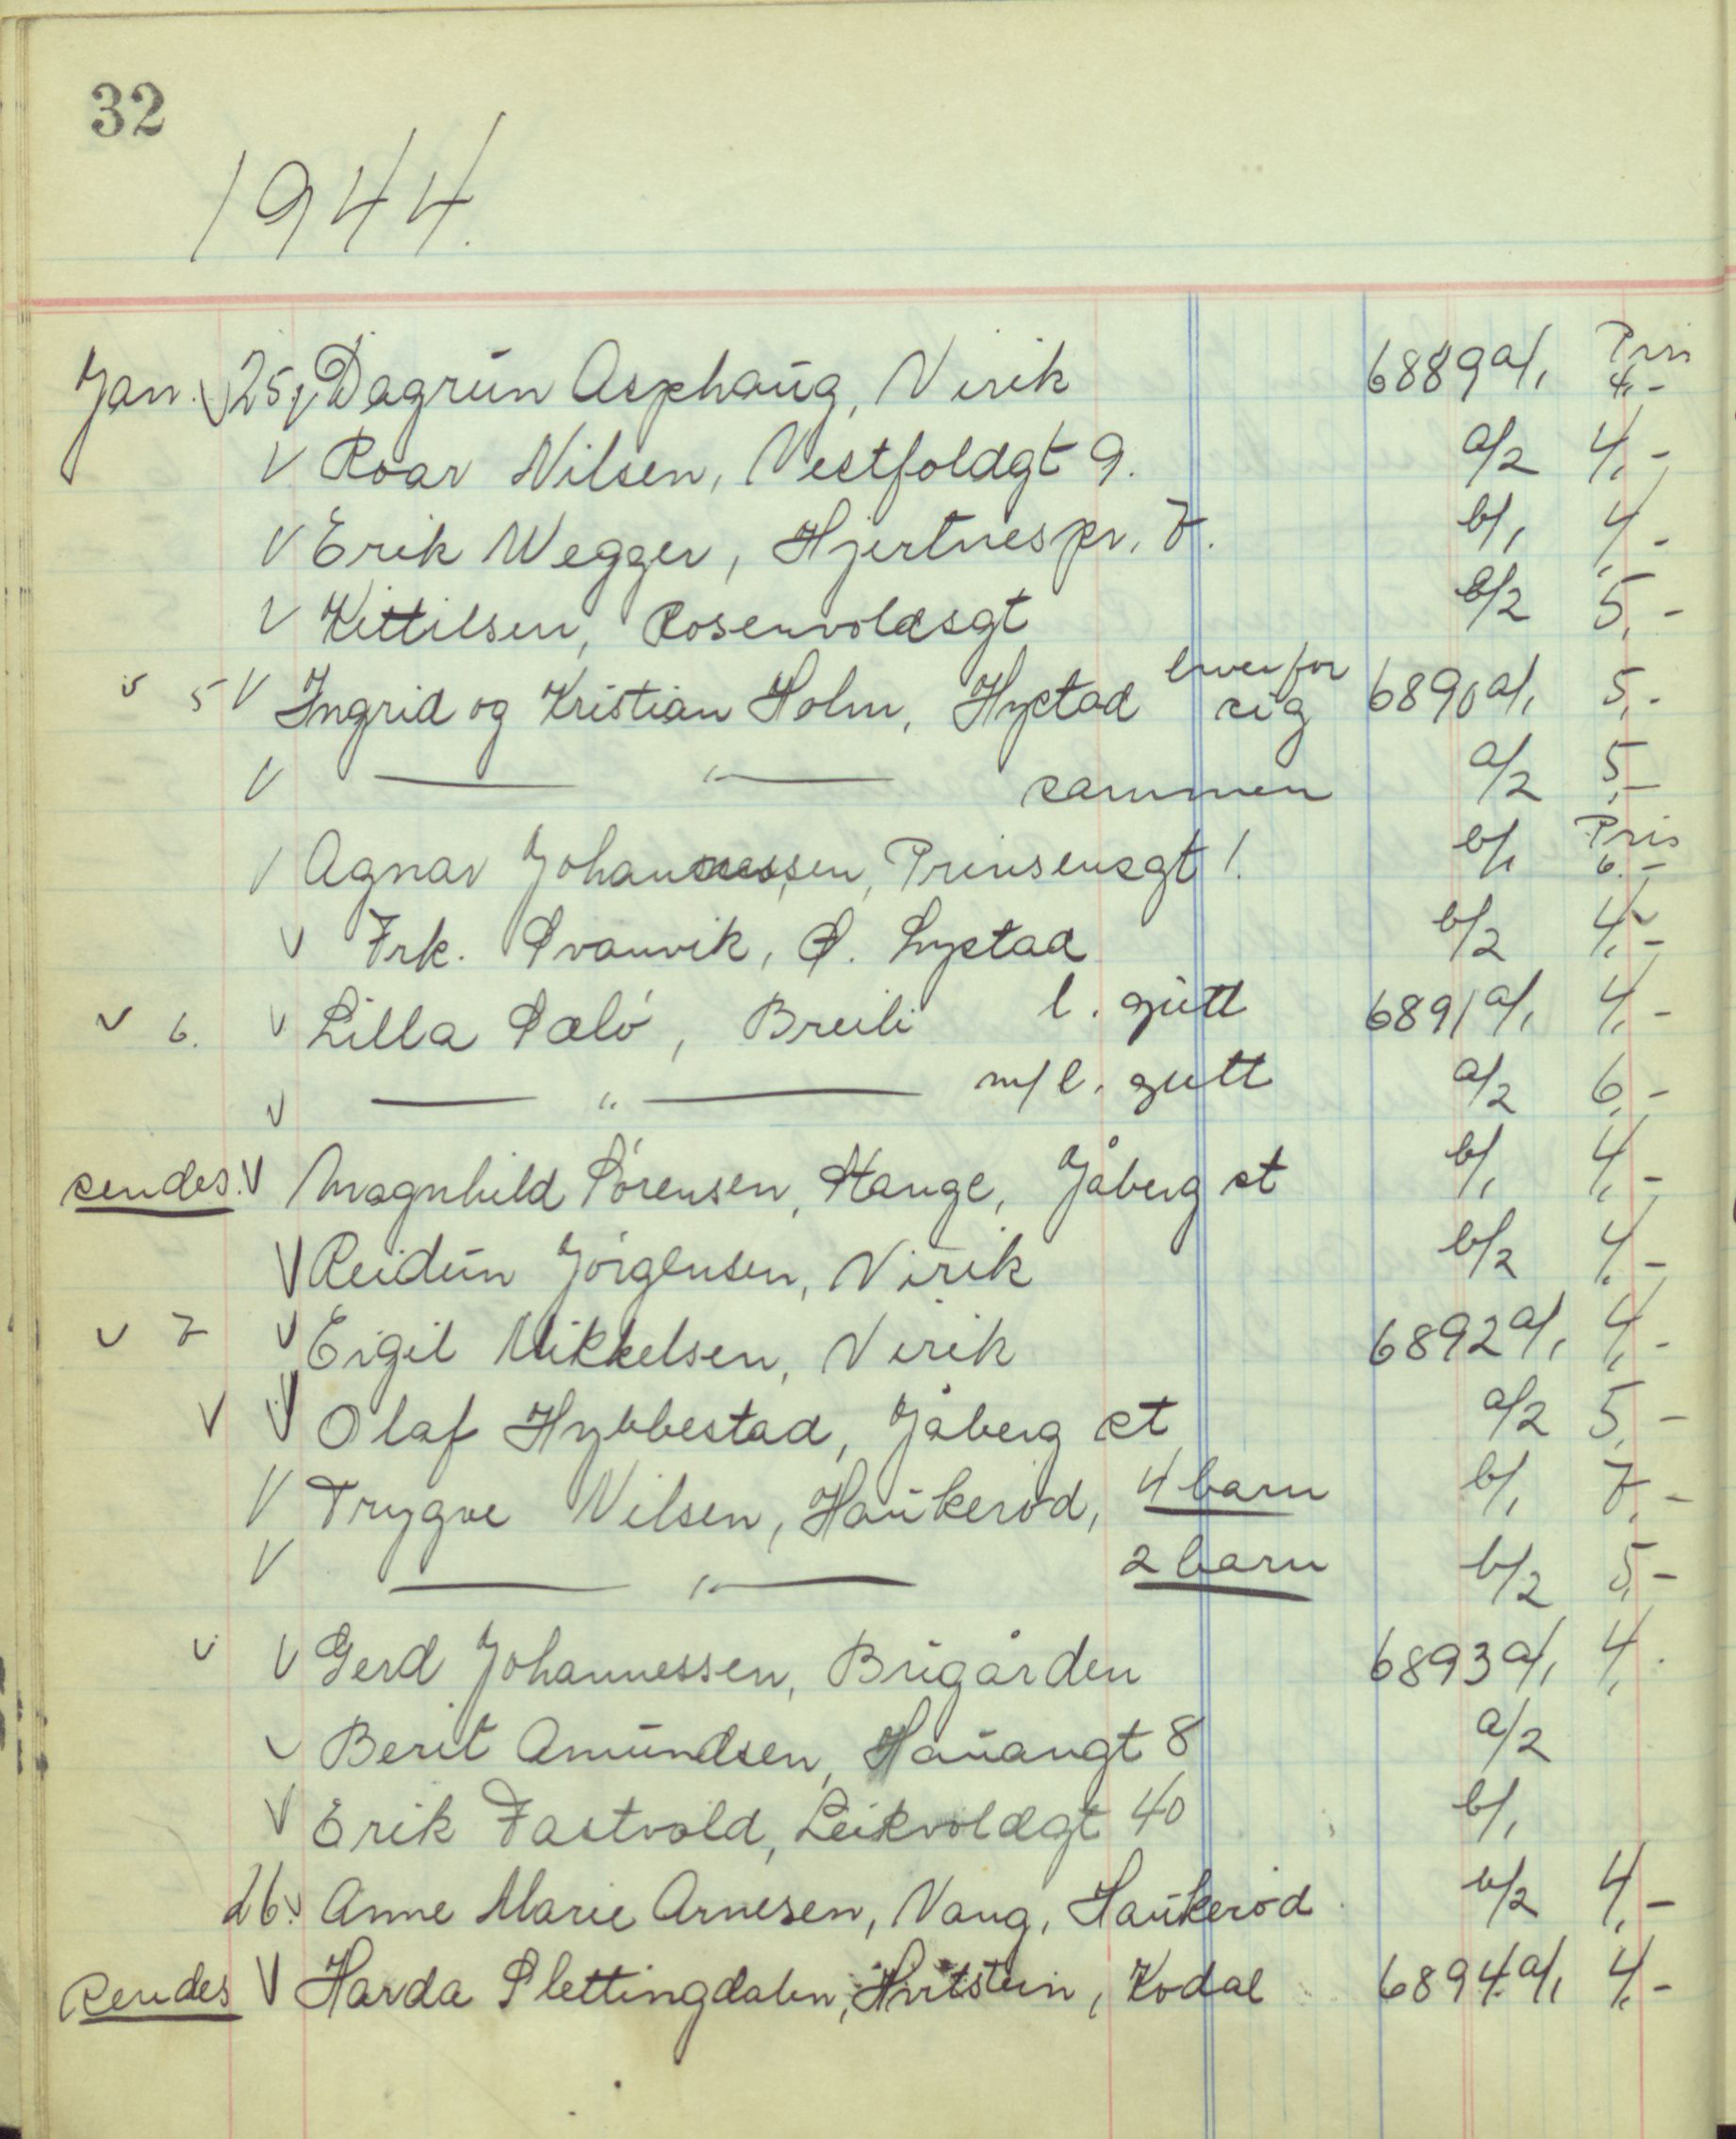 32
1944.
Jan. √ 25, √ Dagrun Asphaug, Virik 6889 a/1 Pris 4,-
√ Roar Nilsen, Vestfoldgt 9. a/2 4,-
√ Erik Wegger, Hjertnespr. 7. b/1 4,-
√ Kittilsen, Rosenvoldsgt b/2 5,-
√ 5 √ Ingrid og Kristian Holm, Hystad hver for sig 6890 a/1 5,-
√ — " — sammen a/2 5,-
√ Agnar Johannessen, Prinsensgt 1. b/1 Pris 6.-
√ Frk. Svanvik, S. Lystad b/2 4,-
√ 6. √ Lilla Sælø, Breili l. gutt 6891 a/1 4,-
√ — " — m/ l. gutt a/2 6,-
sendes. √ Magnhild Sørensen, Stange, Jåberg st b/1 4,-
√ Reidun Jørgensen, Virik b/2 4,-
√ 7 √ Eigil Mikkelsen, Virik 6892 a/1 4,-
√ √ Olaf Hybbestad, Jåberg st a/2 5,-
√ Trygve Nilsen, Haukerød, 4 barn b/1 7,-
√ — " — 2 barn b/2 5,-
√ √ Gerd Johannessen, Bugården 6893 a/1 4,
√ Berit Amundsen, Hauangt 8 a/2
√ Erik Fastvold, Leikvoldgt 40 b/1
26. √ Anne Marie Arnesen, Vang, Haukerød b/2 4,-
sendes √ Harda Slettingdalen, Hvitstein, Kodal 6894 a/1 4,-